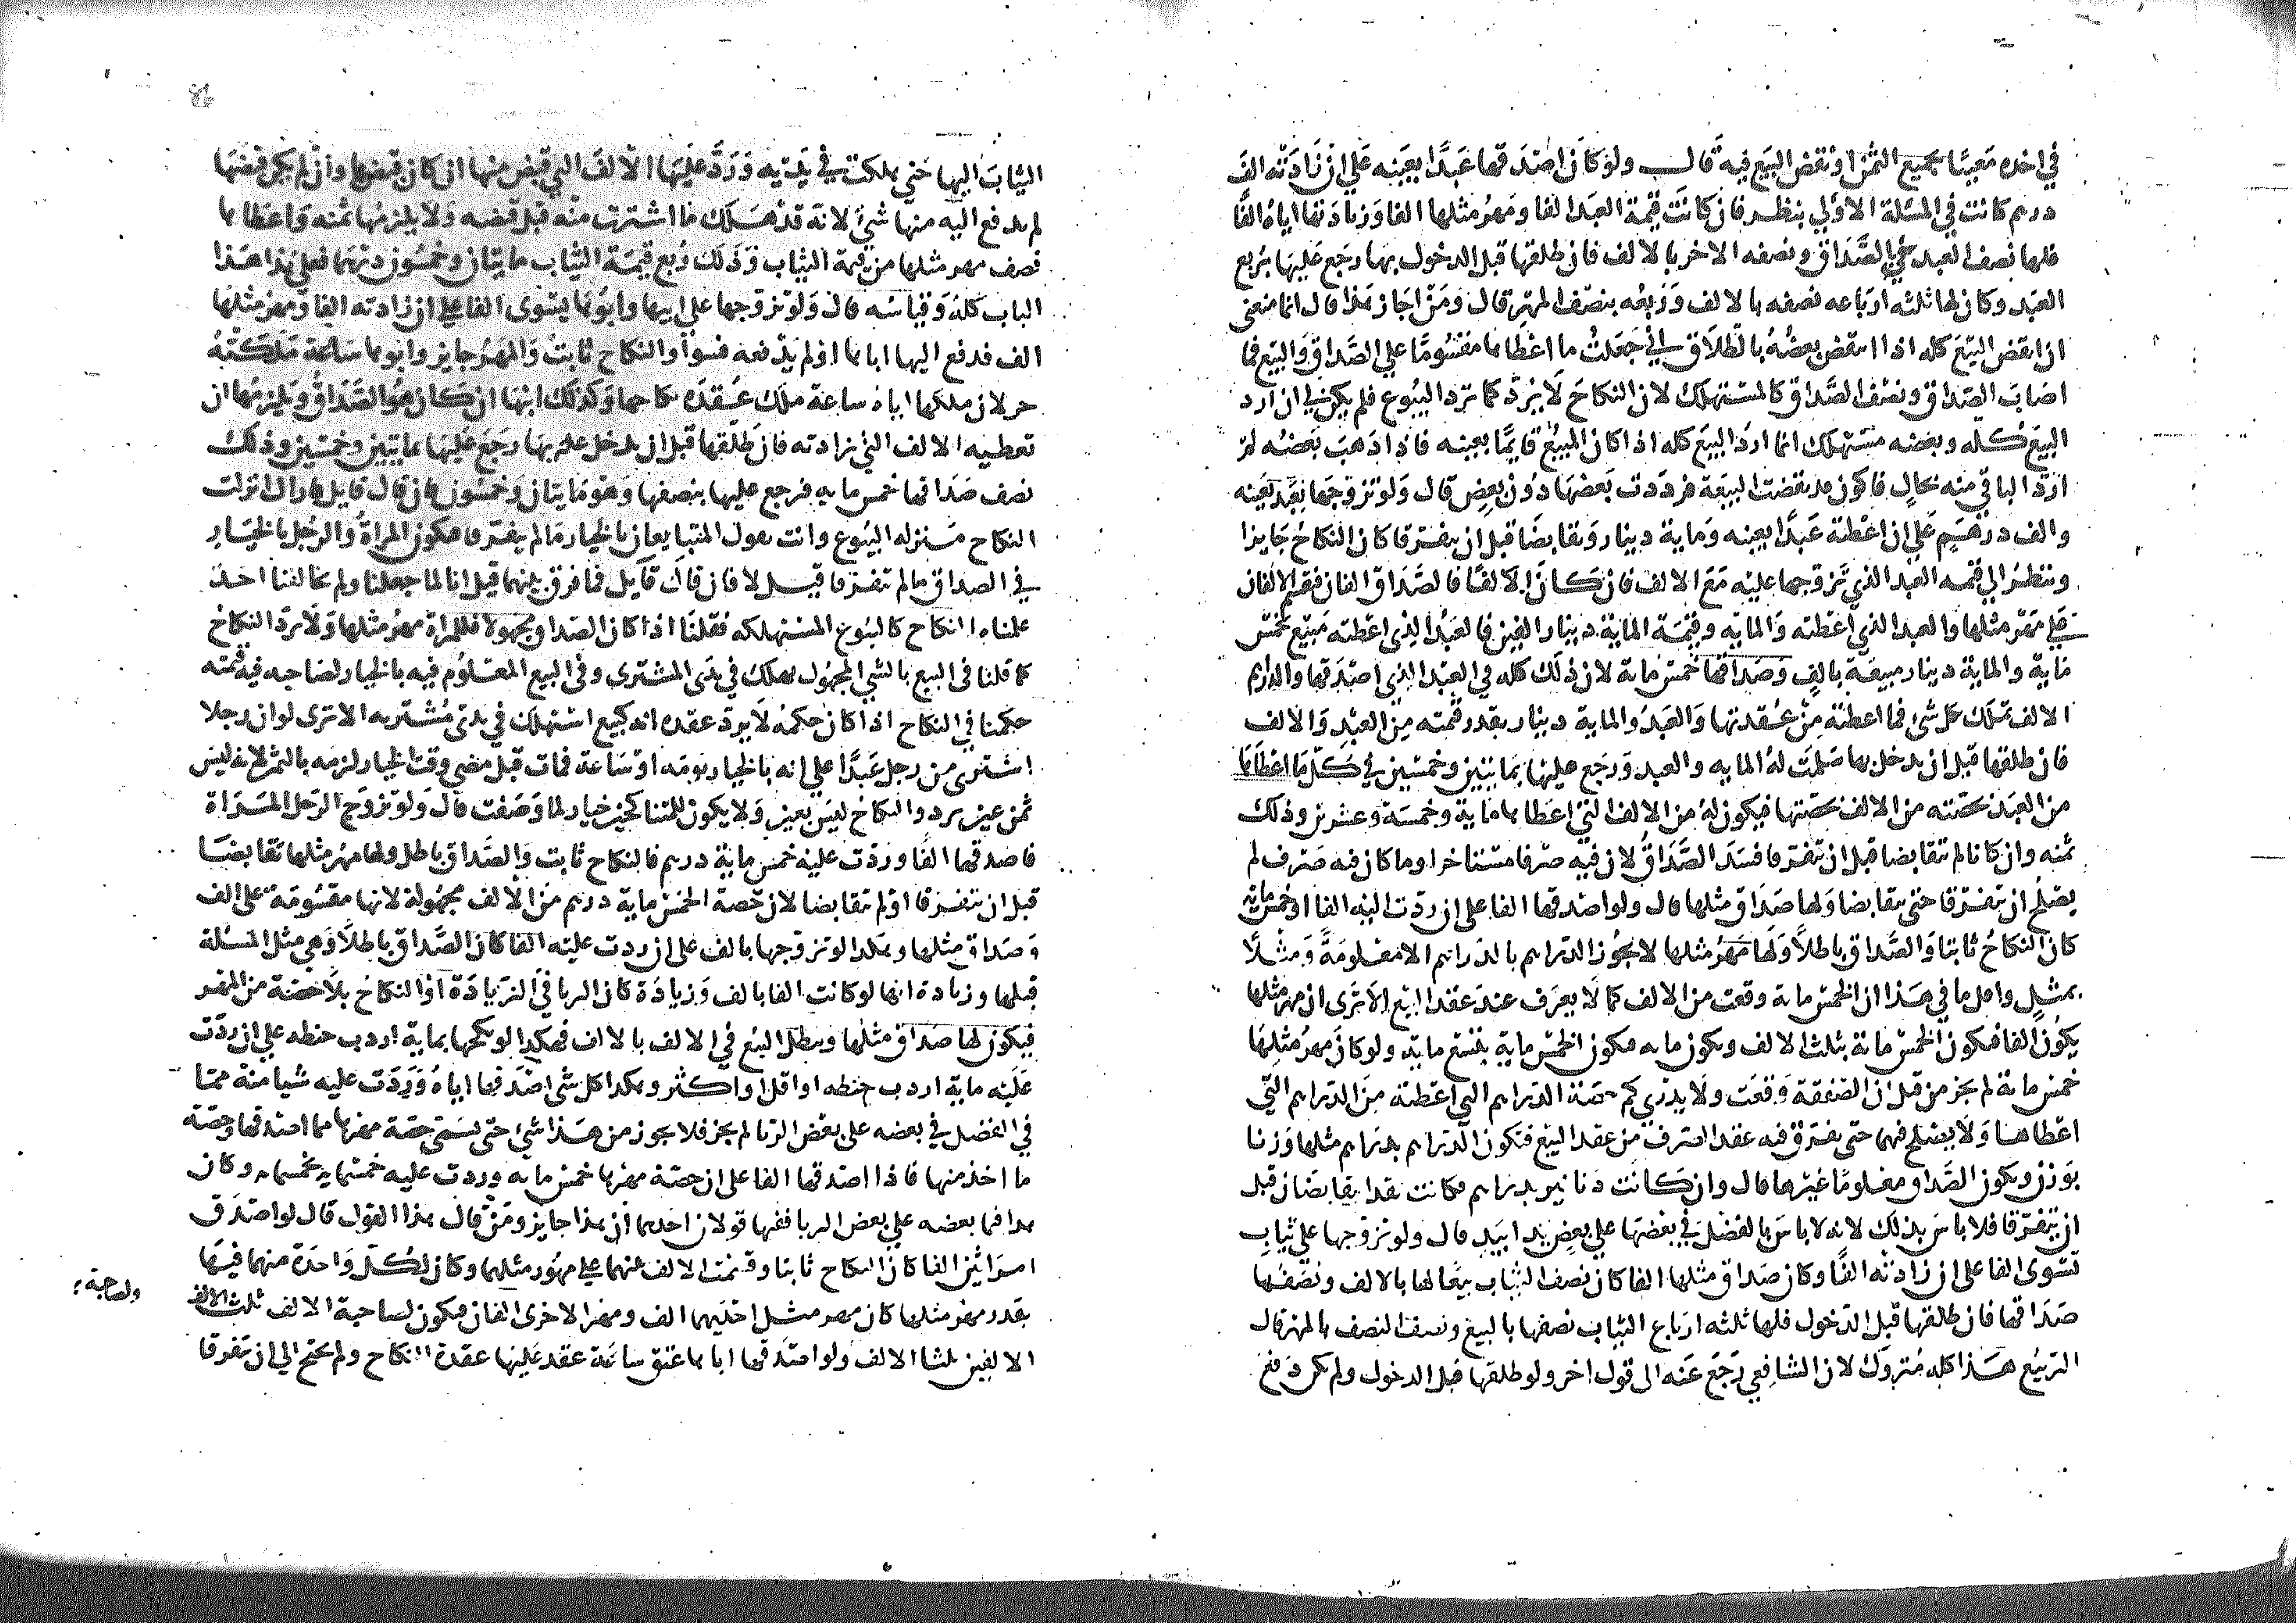 في اخذه معيبًا بجميع الثمن او نقض البيع فيه قال ولو كان اصدقها عبدًا بعينه علي ان زادته الف
درهم كانت في المسئلة الاولي ينظر فان كانت قيمة العبد الفا ومهر مثلها الفا وزيادتها اياه الفًا
فلها نصف العبد بالصداق ونصفه الاخر بالالف فان طلقها قبل الدخول بها رجع عليها بربع
العبد وكان لها ثلثه ارباعه نصفه بالالف وربعه بنصف المهر قال ومن اجاز هذا قال انما منعني
ان انقض البيع كله اذا انتقض بعضه بالطلاق اني جعلت ما اعطاها مقسومًا علي الصداق والبيع فما
اصاب الصداق ونصف الصداق كالمستهلك لان النكاح لا يرد كما ترد البيوع فلم يكن لي ان ارد
البيع كله وبعضه مستهلك انما ارد البيع كله اذا كان المبيع قايمًا بعينه فاذا ذهب بعضه لم
ارد الباقي منه بحال فاكون قد نقضت البيعة فرددت بعضها دون بعض قال ولو تزوجها بعبد بعينه
والف درهم علي ان اعطته عبدًا بعينه وماية دينار وتقابضا قبل ان يفترقا كان النكاح جايزا
وينظر الي قيمه العبد الذي تزوجها عليه مع الالف فان كان الفًا فالصداق الفان فيقسم الالفان
علي مهر مثلها والعبد الذي اعطته والمايه وقيمة الماية دينار الفين فالعبد الذي اعطته مبيع بخمس
ماية والماية دينار مبيعة بالف وصداقها خمس ماية لان ذلك كله في العبد الذي اصدقها والدراهم
الالف تملك كل شي فما اعطته من عقدتها والعبد والماية دينار بقدر قيمته من العبد والالف
فان طلقها قبل ان يدخل بها سلمت له المايه والعبد ورجع عليها بمايتين وخمسين في كل ما اعطاها
من العبد بحصته من الالف بحصتها فيكون له من الالف التي اعطاها ماية وخمسة وعشرين وذلك
ثمنه وان كانا لم يتقابضا قبل ان يتفرقا فسد الصداق لان فيه صرفا مستاخرا وما كان فيه صرف لم
يصلح ان يتفرقا حتي يتقابضا ولها صداق مثلها قال ولو اصدقها الفا علي ان ردت اليه الفا او خمس ماية
كان النكاح ثابتا والصداق باطلا ولها مهر مثلها لا يجوز الدراهم بالدراهم الا معلومة ومثلًا
بمثل واقل ما في هذا ان الخمس ماية وقعت من الالف بما لا يعرف عند عقد البيع الا تري ان مهر مثلها
يكون الفا فيكون الخمس ماية بثلث الالف ويكون مايه فيكون الخمس ماية بتسع مايه ولو كان مهر مثلها
خمس ماية لم يجز من قبل ان الصفقة وقعت ولا يدري كم حصة الدراهم التي اعطته من الدراهم التي
اعطاها ولا يصلح فيها حتي يفترق فيه عقد الصرف من عقد البيع فتكون الدراهم بدراهم مثلها وزنا
بوزن ويكون الصداق معلومًا غيرها قال وان كانت دنانير بدراهم فكانت نقدا يتقابضان قبل
ان يتفرقا فلا باس بذلك لانه لا باس بالفضل في بعضها علي بعض يدا بيد قال ولو تزوجها علي ثياب
تسوي الفا علي ان زادته الفًا وكان صداق مثلها الفا كان نصف الثياب بيعًا لها بالالف ونصفها
صداقها فان طلقها قبل الدخول فلها ثلثه ارباع الثياب نصفها بالبيع ونصف النصف بالمهر قال
الربيع هذا كله متروك لان الشافعي رجع عنه الي قول اخر ولو طلقها قبل الدخول ولم يكن دفع
الثياب اليها حتي هلكت في يديه ورد عليها الالف التي قبض منها ان كان قبضها وان لم يكن قبضها
لم يدفع اليه منها شي لانه قد هلك ما اشترت منه قبل قبضه ولا يلزمها ثمنه واعطاها
نصف مهر مثلها من قيمة الثياب وذلك ربع قيمة الثياب مايتان وخمسون درهما فعلي هذا هذا
الباب كله وقياسه قال ولو تزوجها علي ابيها وابوها يسوي الفا علي ان زادته الفا ومهر مثلها
الف فدفع اليها اباها او لم يدفعه فسوا والنكاح ثابت والمهر جايز وابوها ساعة ملكته
حر لان ملكها اباه ساعة ملك عقدة نكاحها وكذلك ابنها ان كان هو الصداق ويلزمها ان
تعطيه الالف التي زادته فان طلقها قبل ان يدخل بها رجع عليها بمايتين وخمسين وذلك
نصف صداقها خمس مايه فرجع عليها بنصفها وهو مايتان وخمسون فان قال قايل فاراك انزلت
النكاح منزله البيوع وانت تقول المتبايعان بالخيار مالم يتفرقا فتكون المراة والرجل بالخيار
في الصداق مالم يتفرقا قيل لا فان قال قايل فما فرق بينهما قيل انا لما جعلنا ولم يخالفنا احد
علمناه النكاح كالبيوع المستهلكه فقلنا اذا كان الصداق مجهولا فللمراة مهر مثلها ولا يرد النكاح
كما قلنا في البيع بالشي المجهول يهلك في يدي المشتري وفي البيع المعلوم فيه بالخيار لصاحبه فيه قيمته
حكمنا في النكاح اذا كان حكمه لا يرد عقده انه كبيع استهلك في يدي مشتريه الا تري لو ان رجلا
اشتري من رجل عبدًا علي انه بالخيار يومه او ساعة فمات قبل مضي وقت الخيار لزمه بالثمن لانه ليس
ثمن عين يرد والنكاح ليس بعين ولا يكون للمتناكحين خيار لما وصفت قال ولو تزوج الرجل المراة
فاصدقها الفا وردت عليه خمس ماية درهم فالنكاح ثابت والصداق باطل ولها مهر مثلها تقابضا
قبل ان يتفرقا او لم يتقابضا لان حصة الخمس ماية درهم من الالف مجهولة لانها مقسومة علي الف
وصداق مثلها وهكذا لو تزوجها بالف علي ان ردت عليه الفا كان الصداق باطلا وهي مثل المسئلة
قبلها وزيادة انها لو كانت الفا بالف وزيادة كان الربا في الزيادة او النكاح بلا حصة من المهر
فيكون لها صداق مثلها ويبطل البيع في الالف بالالف فهكذا لو نكحها بماية اردب حنطه علي ان ردت
عليه ماية اردب حنطه او اقل او اكثر وهكذا كل شي اصدقها اياه وردت عليه شيا منه مما
في الفضل في بعضه علي بعض الربا لم يجز فلا يجوز من هذا شي حتي يسمي حصة مهرها مما اصدقها وحصة
ما اخذ منها فاذا اصدقها الفا علي ان حصة مهرها خمس مايه وردت عليه خمسمايه بخمسمايه وكان
هذا فيما بعضه علي بعض الربا ففيها قولان احدهما ان هذا جايز ومن قال هذا القول قال لو اصدق
امراتين الفا كان النكاح ثابتا وقسمت الالف بينهما علي مهور مثلهما وكان لكل واحدة منهما فيها
بقدر مهر مثلها كان مهر مثل احديهما الف ومهر الاخري الفان فيكون لصاحبة الالف ثلث الالف
ولصاحبة
الالفين ثلثا الالف ولو اصدقها اباها عتق ساعة عقد عليها عقدة النكاح ولم يحتج الي ان يتفرقا